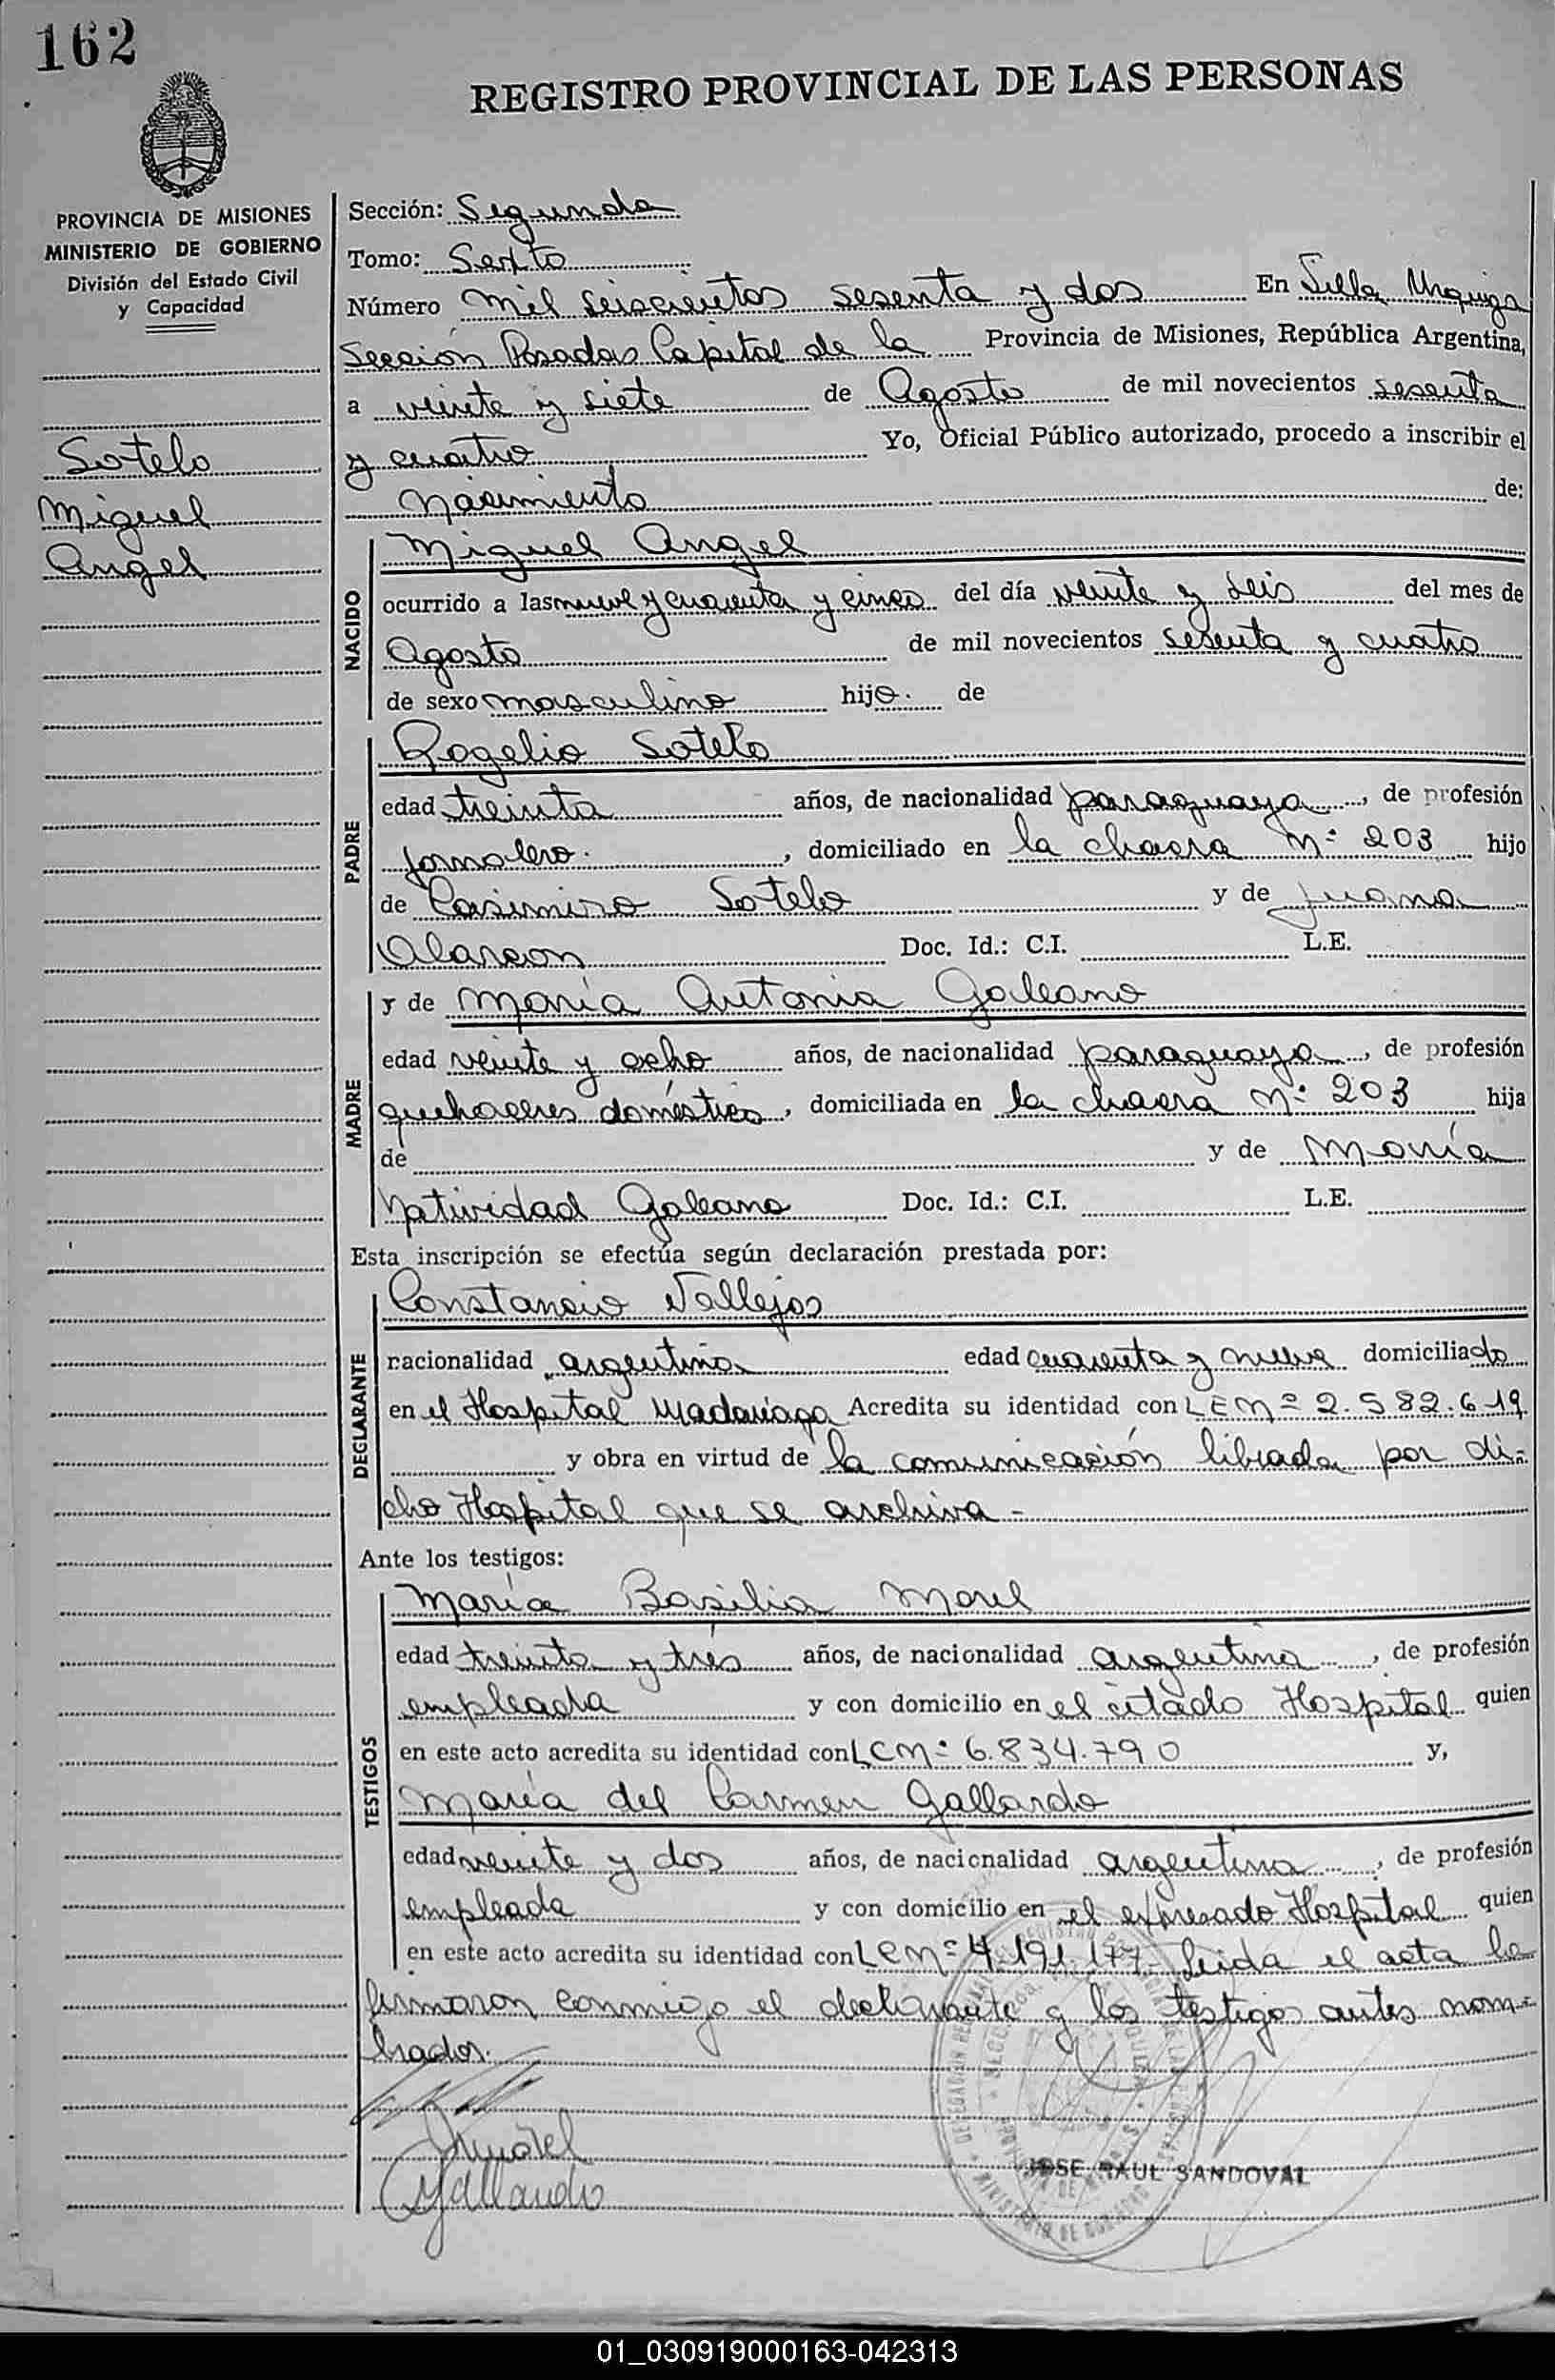 162
REGISTRO PROVINCIAL DE LAS PERSONAS
PROVINCIA DE MISIONES
MINISTERIO DE GOBIERNO
División del Estado Civil
y Capacidad
Sotelo
Miguel
Angel
Sección: Segunda
Tomo: Sexto
Número mil seiscientos sesenta y dos En Villa Urquiza
Sección Posadas Capital de la Provincia de Misiones, República Argentina,
a veinte y siete de Agosto de mil novecientos sesenta
y cuatro Yo, Oficial Público autorizado, procedo a inscribir el
nacimiento de:
NACIDO
Miguel Angel
ocurrido a las nueve y cuarenta y cinco del día veinte y seis del mes de
Agosto de mil novecientos sesenta y cuatro
de sexo masculino hijo. de
PADRE
Rogelio Sotelo
edad treinta años, de nacionalidad paraguaya, de profesión
jornalero. , domiciliado en la chacra Nº 203 hijo
de Casimiro Sotelo y de Juana
Alarcon Doc. Id.: C.I. L.E.
MADRE
y de María Antonia Galeano
edad veinte y ocho años, de nacionalidad paraguaya, de profesión
quehaceres domésticos, domiciliada en la chacra Nº 203 hija
de y de María
Natividad Galeano Doc. Id.: C.I. L.E.
Esta inscripción se efectúa según declaración prestada por:
DECLARANTE
Constancio Vallejos
nacionalidad argentina edad cuarenta y nueve domiciliado
en el Hospital Madariaga Acredita su identidad con LE Nº 2.582.619
y obra en virtud de la comunicación librada por di-
cho Hospital que se archiva -
Ante los testigos:
TESTIGOS
María Basilia Morel
edad treinta y tres años, de nacionalidad argentina, de profesión
empleada y con domicilio en el citado Hospital quien
en este acto acredita su identidad con LC Nº 6.834.790 y,
María del Carmen Gallardo
edad veinte y dos años, de nacionalidad argentina, de profesión
empleada y con domicilio en el expresado Hospital quien
en este acto acredita su identidad con LC Nº 4.191.177- Leida el acta la
firmaron conmigo el declarante y los testigos antes nom-
brados.
Morel
Gallardo
JOSE RAUL SANDOVAL
01_030919000163-042313